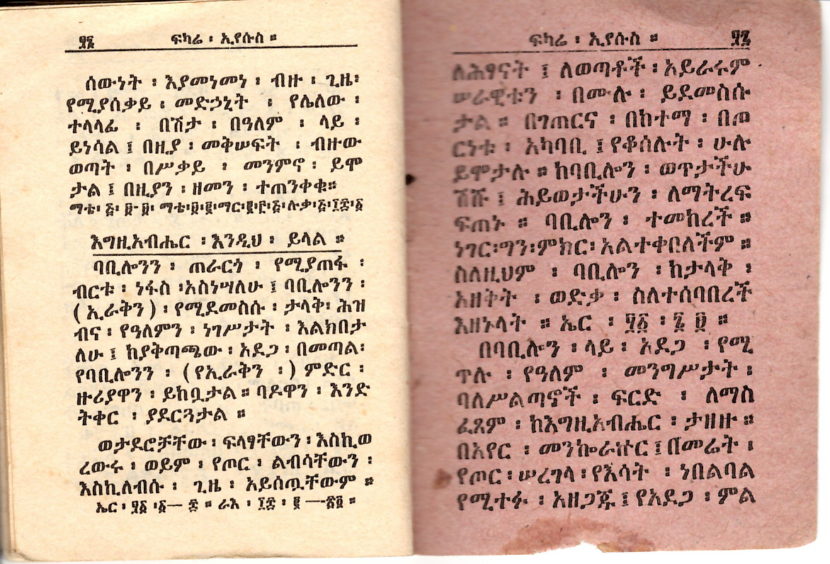 ፶፯ ፍካሬ ፡ ኢየሱስ ።
ሰውነት ፡ እያመነመነ ፡ ብዙ ፡ ጊዜ፡
የሚያሰቃይ ፡ መድኃኒት ፡ የሌለው ፡
ተላላፊ ፡ በሽታ ፡ በዓለም ፡ ላይ ፡
ይነሳል ፤ በዚያ ፡ መቅሠፍት ፡ ብዙው
ወጣት ፡ በሥቃይ ፡ መንምኖ ፡ ይሞ
ታል ፤ በዚያን ፡ ዘመን ፡ ተጠንቀቁ።
እግዚአብሔር ፡ እንዲህ ፡ ይላል ።
ባቢሎንን ፡ ጠራርጎ ፡ የሚያጠፋ ፡
ብርቱ ፡ ነፋስ ፡አስነሣለሁ ፤ ባቢሎንን፡
(ኢራቅን) ፡ የሚደመስሱ ፡ ታላቅ፡ ሕዝ
ብና ፡ የዓለምን ፡ ነገሥታት ፡ እልክበታ
ለሁ ፤ ከያቅጣጫው ፡ አደጋ ፡ በመጣል፡
የባቢሎንን ፡ (የኢራቅን ፡) ምድር ፡
ዙሪያዋን ፡ ይከቧታል ። ባዶዋን ፡ እንድ
ትቀር ፡ ያደርጓታል ።
ወታደሮቻቸው ፡ ፍላፃቸውን ፡ እስኪወ
ረውሩ ፡ ወይም ፡ የጦር ፡ ልብሳቸውን ፡
እስኪለብሱ ፡ ጊዜ ፡ አይሰጧቸውም ።
ፍካሬ ፡ ኢየሱስ ።
ለሕፃናት ፤ ለወጣቶች ፡ አይራሩም
ሠራዊቱን ፡ በሙሉ ፡ ይደመስሱ
ታል ። በገጠርና ፡ በከተማ ፡ በጦ
ርነቱ ፡ አካባቢ ፤ የቆሰሉት ፡ ሁሉ
ይሞታሉ ። ከባቢሎን ፡ ወጥታችሁ
ሽሹ ፤ ሕይወታችሁን ፡ ለማትረፍ
ፍጠኑ ። ባቢሎን ፡ ተመከረች ።
ነገር፡ግን፡ምክር፡ አልተቀበለችም ።
ስለዚህም ፡ ባቢሎን ፡ ከታላቅ ፡
አዘቅት ፡ ወድቃ ፡ ስለተሰባበረች
እዘኑላት ። ኤር ፡ ፶፩ ፡ ፯ ፱ ።
በባቢሎን ፡ ላይ ፡ አደጋ ፡ የሚ
ጥሉ ፡ የዓለም ፡ መንግሥታት ፡
ባለሥልጣኖች ፡ ፍርድ ፡ ለማስ
ፈጸም ፡ ከእግዚአብሔር ፡ ታዘዙ ።
በአየር ፡ መንኰራኵር ፤ በመሬት ፡
የጦር ፡ ሠረገላ ፡ የእሳት ፡ ነበልባል
የሚተፉ ፡ አዘጋጁ ፤ የአደጋ ፡ ምል